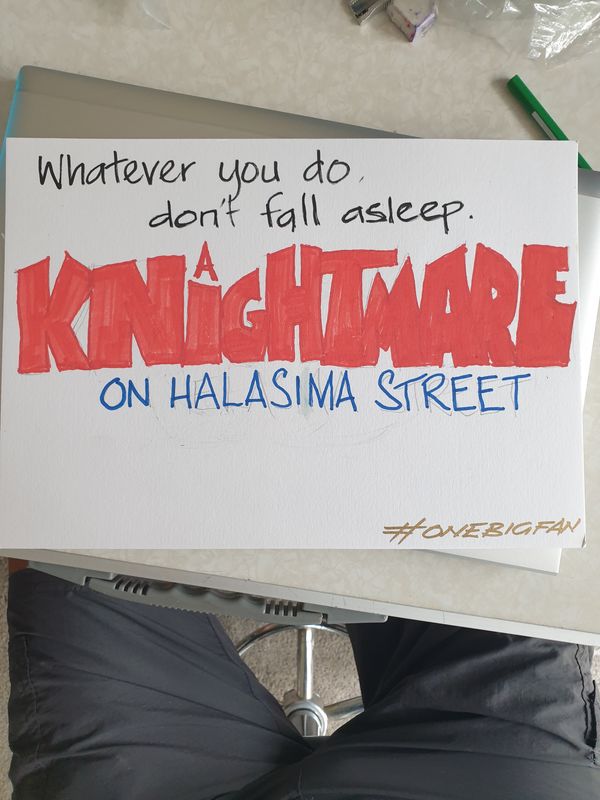 Whatever you do,
don't fall asleep.
A
KNiGHTMARE
ON HALASIMA STREET
#ONEBIGFAN